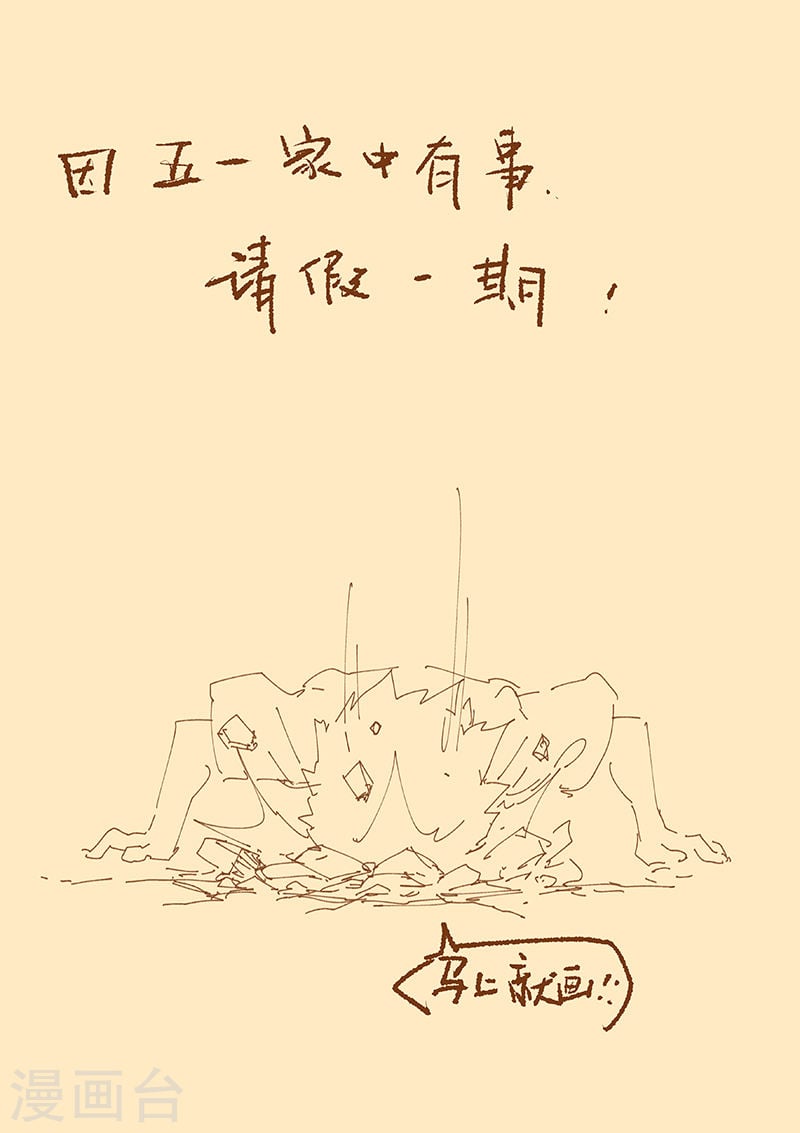 因五一家中有事.
请假一期！
马上就画!!
漫画台